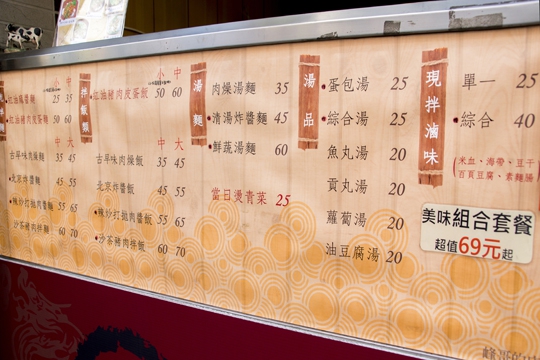 小 中
紅油豬肉皮蛋麵 50 60
中 大
古早味肉燥麵 35 45
北京炸醬麵 45 55
辣炒打拋肉醬麵 55 65
沙茶豬肉拌麵 60 70
拌飯類
小 中
紅油豬肉皮蛋飯 50 60
中 大
古早味肉燥飯 35 45
北京炸醬飯 45 55
辣炒打拋肉醬飯 55 65
沙茶豬肉拌飯 60
湯麵
肉燥湯麵 35
清湯炸醬麵 45
鮮蔬湯麵 60
當日燙青菜 25
湯品
蛋包湯 25
綜合湯 25
魚丸湯 20
貢丸湯 20
蘿蔔湯 20
油豆腐湯 20
現拌滷味
單一 25
綜合 40
米血、海帶、豆干
百頁豆腐、素麵腸
美味組合套餐
超值69元起